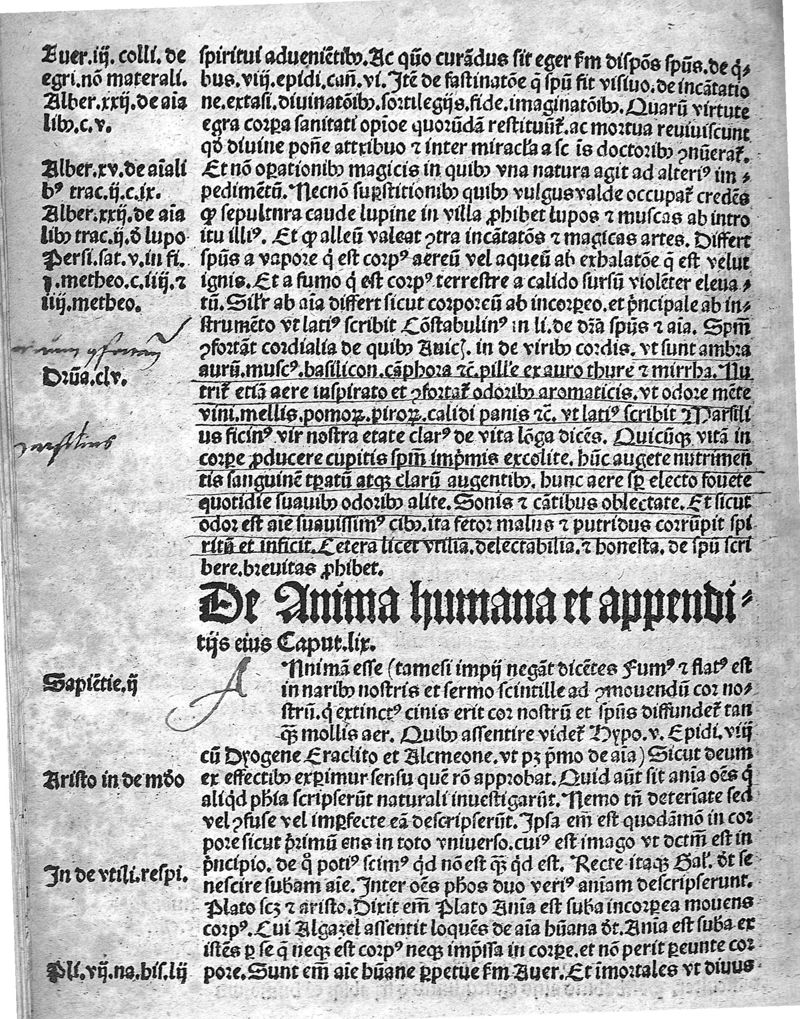 Auer.iij. colli. de
egri.nō materali.
Alber.xxij.de aīa
libꝫ.c.v.
Alber.xv.de aīali
bꝰ trac.ij.c.ix.
Alber.xxij.de aīa
libꝫ trac.ij.ð lupo
Persi.sat.v.in fi.
j.metheo.c.iiij.⁊
iiij.metheo.
Dr̄na.clv.
Sapiētie.ij
Aristo in de mūdo
In de vtili.respi.
Pli.vij.na.his.lij
spiritui aduenīetibꝫ.Ac quō curādus sit eger s̄m dispōs spūs.de q̇⸗
bus.viij.epidi.cañ.vi.Itē de fastinatōe q̄ spū fit visiuo.de incātatio
ne.extasi.diuinatōibꝫ.sortilegijs.fide.imaginatōibꝫ.Quarū virtute
egra corꝑa sanitati opīoe quorūdā restituūt̄.ac mortua reuiuiscunt
qđ diuine poñe attribuo ⁊ inter miracl'a a sc̄ īs doctoribꝫ ꝯnūerat̄.
Et nō oꝑationibꝫ magicis in quibꝫ vna natura agit ad alteriꝰ im⸗
pedimētū.Necnō suꝑstitionibꝫ quibꝫ vulgus valde occupat̄ credēs
ꝙ sepultnra caude lupine in villa ꝓhibet lupos ⁊ muscas ab intro
itu illiꝰ. Et ꝙ alleū valeat ꝯtra incātatōs ⁊ magicas artes. Differt
spūs a vapore q̇ est corpꝰ aereū vel aqueū ab exhalatōe q̄ est velut
ignis.Et a fumo q̇ est corpꝰ terrestre a calido sursū violēter eleua⸗
tū.Sil'r ab aīa differt sicut corporeū ab incorꝑeo.et p̄ncipale ab in⸗
strumēto vt latiꝰ scribit Cōstabulinꝰ in li.de dr̄ia spūs ⁊ aīa. Spm̄
ꝯfortāt cordialia de quibꝫ Auicē. in de viribꝫ cordis. vt sunt ambra
aurū.muscꝰ.basilicon.cāphora ⁊c̄.pill'e ex auro thure ⁊ mirrha.Nu
trit̄ etiā aere inspirato et ꝯfortat̄ odoribꝫ aromaticis.vt odore mēte
vini.mellis.pomoꝝ.piroꝝ.calidi panis ⁊c̄. vt latiꝰ scribit Marsili
us ficinꝰ vir nostra etate clarꝰ de vita lōga dicēs. Quicūqꝫ vitā in
corꝑe ꝓducere cupitis spm̄ imp̄mis excolite. hūc augete nutrimen
tis sanguinē tꝑatū atqꝫ clarū augentibꝫ. hunc aere sꝑ electo fouete
quotidie suauibꝫ odoribꝫ alite. Sonis ⁊ cātibus oblectate. Et sicut
odor est aīe suauissimꝰ cibꝫ.ita fetor malus ⁊ putridus corrūpit spi
ritū et inficit.Cetera licet vtilia.delectabilia.⁊ honesta. de spū scri
bere.breuitas ꝓhibet.
De Anima humana et appendi⸗
tijs eius Caput.lix.
A Nnimā esse (tamesi impij negāt dicētes Fumꝰ ⁊ flatꝰ est
in naribꝫ nostris et sermo scintille ad ꝯmouendū cor no⸗
strū.q̇ extinctꝰ cinis erit cor nostrū et spūs diffundet̄ tan
qꝫ̄ mollis aer. Quibꝫ assentire videt̄ Hypo.v.Epidi.viij
cū Dyogene Eraclito et Alcmeone.vt pꝫ p̄mo de aīa) Sicut deum
ex effectibꝫ exꝑimur sensu quē rō approbat.Quid aūt sit anīa oēs q̇
aliq̇d ph̄ia scripserūt naturali inuestigarūt.Nemo tñ deterīate sed
vel ꝯfuse vel imꝑfecte eā descripserūt. Ipsa em̄ est quodāmō in cor
pore sicut p̄rimū ens in toto vniuerso.cuiꝰ est imago vt dctm̄ est in
p̄ncipio. de q̊ potiꝰ scimꝰ q̇d nō est qꝫ̄ q̇d est. Recte itaqꝫ Gal'. ðt se
nescire subam aīe. Inter oēs ph̄os duo veriꝰ aniam descripserunt.
Plato scꝫ ⁊ aristo.Dixit em̄ Plato Anīa est suba incorꝑea mouens
corpꝰ. Cui Algazel assentit loquēs de aīa hūana ðt. Anīa est suba ex
istēs ꝑ se q̄ neqꝫ est corpꝰ neqꝫ imp̄ssa in corꝑe.et nō perit ꝑeunte cor
pore.Sunt em̄ aīe hūane ꝑpetue s̄m Auer.Et īmortales vt diuus